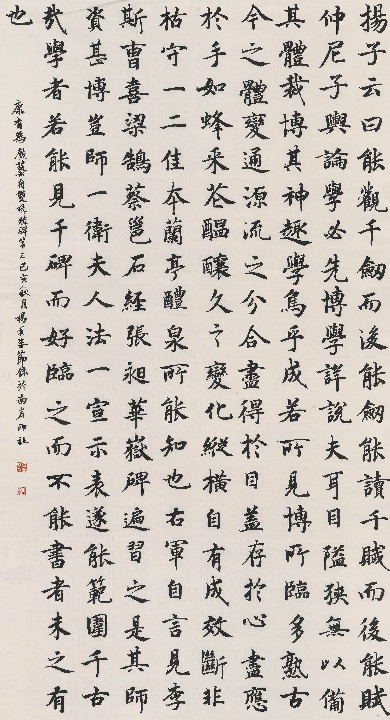 揚子云曰能觀千劒而後能劒能讀千賦而後能賦
仲尼子輿論學必先博學詳說夫耳目隘狹無以備
其體裁博其神趣學烏乎成若所見博所臨多熟古
今之體變通源流之分合盡得於目盖存於心盡應
於手如蜂采花醖釀久之變化縱橫自有成效斷非
枯守一二佳本蘭亭醴泉所能知也右軍自言見李
斯曹喜梁鵠蔡邕石經張昶華嶽碑遍習之是其師
資甚博豈師一衛夫人法一宣示表遂能範圍千古
哉學者若能見千碑而好臨之而不能書者未之有
也
康有為廣藝舟雙楫購碑第三己亥秋月楊節錄於南印社